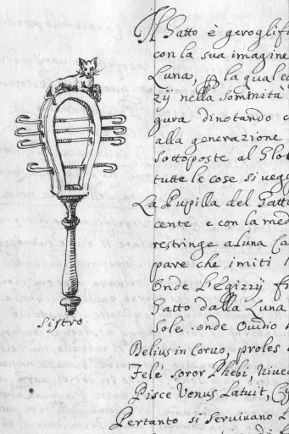 Il Gatto è geroglifi
con la sua imagine
Luna, la qual c
zij nella sommità
gura dinotando c
alla generazione
sottoposte al Glo
tutte le cose si ueg
La Pupilla del Gatto
cente e con la med
restringe a Luna Ca
pare che imiti
Onde L'Egizzÿ f
Gatto dalla Luna
Sole. onde Ouidio
Delius in Coruo, proles
Felé soror Phebi, niue
Pisce Venus Latuit,
Pertanto si seruiuano L
Sistro